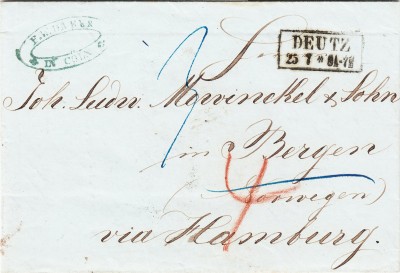 IN COLN
DEUTZ
25 7 * 6A-7U
Joh. Ludw. Mowinckel & Sohn
in Bergen
(Norwegen)
via Hamburg.
4